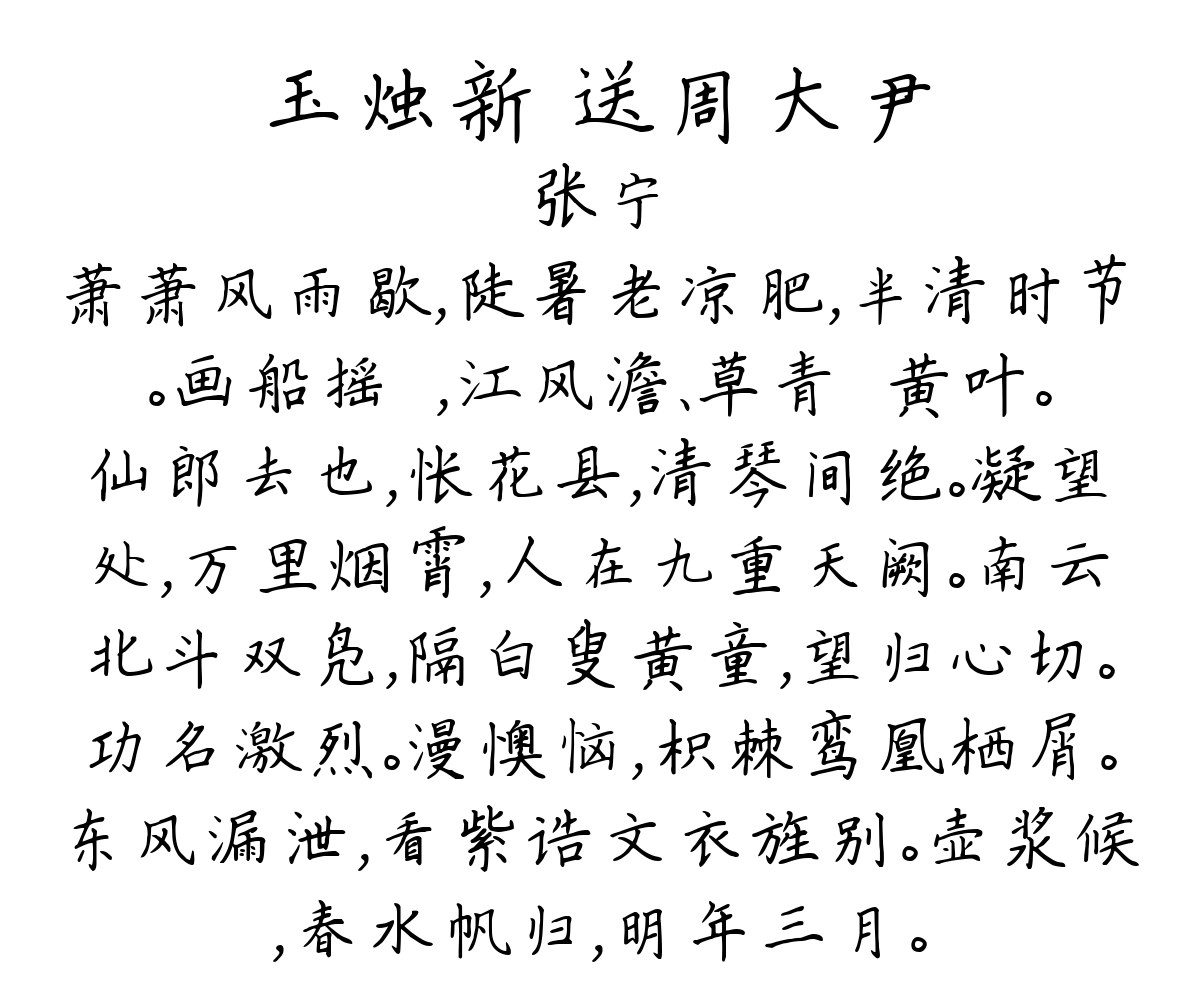 玉烛新 送周大尹
张宁
萧萧风雨歇,陡暑老凉肥,半清时节
。画船摇 ,江风澹、草青 黄叶。
仙郎去也,怅花县,清琴间绝。凝望
处,万里烟霄,人在九重天阙。南云
北斗双凫,隔白叟黄童,望归心切。
功名激烈。漫懊恼,枳棘鸾凰栖屑。
东风漏泄,看紫诰文衣旌别。壶浆候
,春水帆归,明年三月。